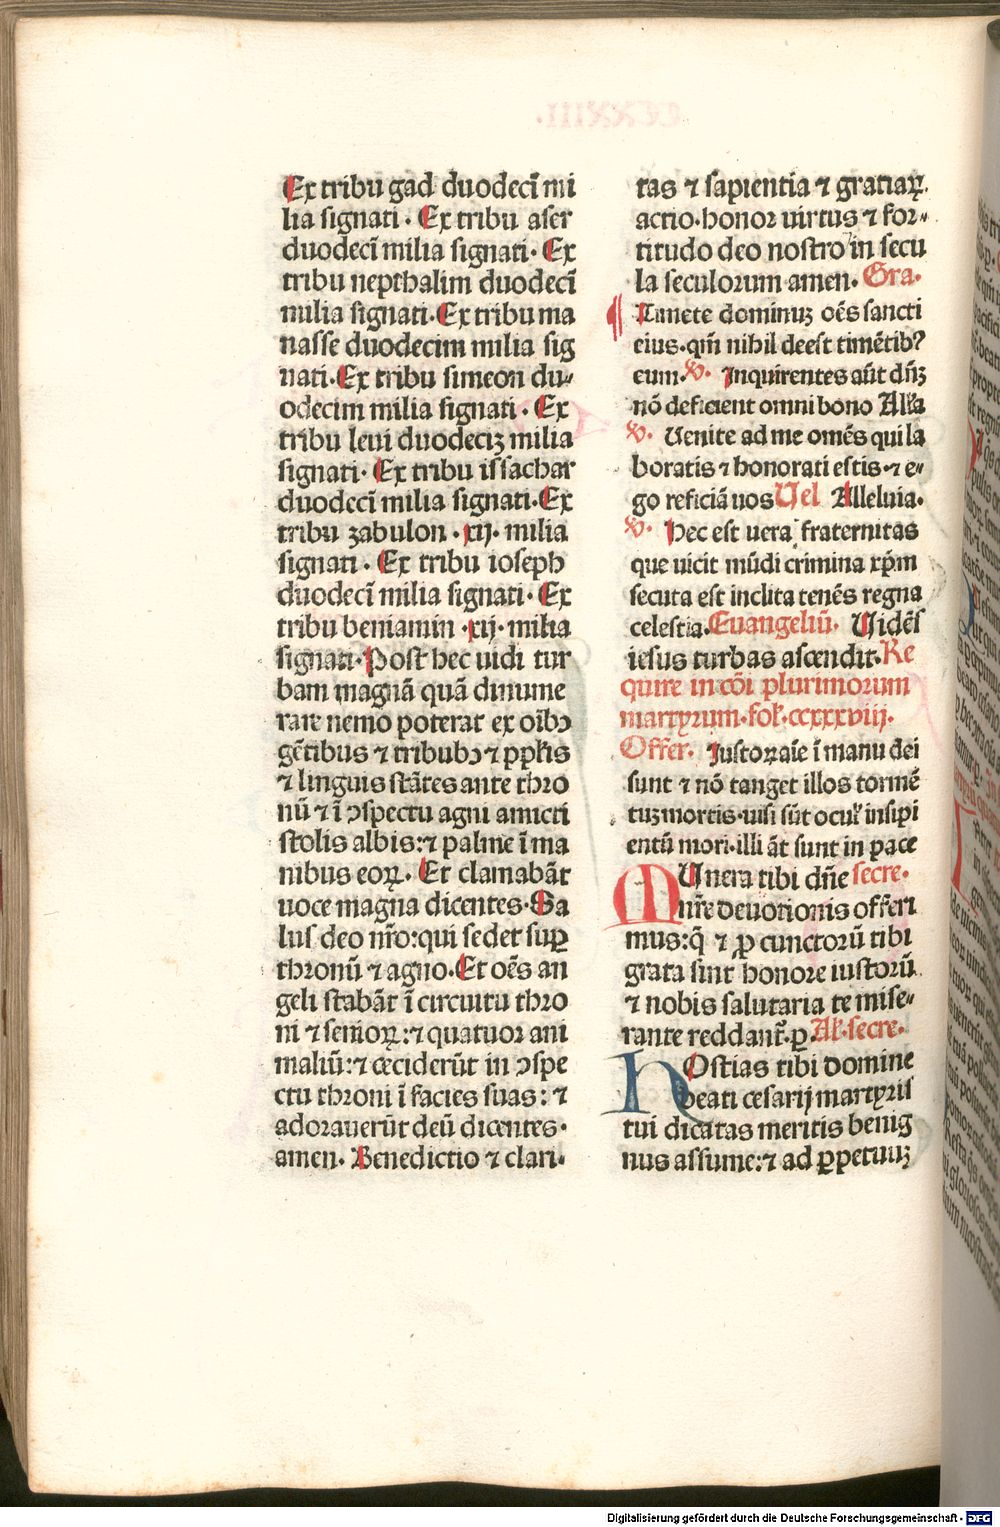 Ex tribu gad duodecĩ mi
lia signati · Ex tribu aser
duodecĩ milia signati · Ex
tribu nepthalim duodecĩ
milia signati · Ex tribu ma
nasse duodecim milia sig
nati · Ex tribu simeon du⸗
odecim milia signati · Ex
tribu leui duodeciʒ milia
signati · Ex tribu issachar
duodecĩ milia signati · Ex
tribu zabulon · xij · milia
signati · Ex tribu ioseph
duodecĩ milia signati · Ex
tribu beniamin · xij · milia
signati · Post hec uidi tur
bam magnã quã dinume
rare nemo poterat ex oĩbꝰ
gẽtibus ⁊ tribubꝰ ⁊ ppl̃is
⁊ linguis stãtes ante thro
nũ ⁊ ĩ ꝯspectu agni amicti
stolis albis : ⁊ palme ĩ ma
nibus eoꝝ · Et clamabãt
uoce magna dicentes · Sa
lus deo nr̃o : qui sedet suꝑ
thronũ ⁊ agno · Et oẽs an
geli stabãt ĩ circuitu thro
ni ⁊ senioꝝ : ⁊ quatuor ani
maliũ : ⁊ ceciderũt in ꝯspe
ctu throni ĩ facies suas : ⁊
adorauerũt deũ dicentes ·
amen · Benedictio ⁊ clari⸗
tas ⁊ sapientia ⁊ gratiaꝝ
actio · honor uirtus ⁊ for⸗
titudo deo nostro in secu
la seculorum amen · Gra·
Timete dominuʒ oẽs sancti
eius · qm̃ nihil deest timẽtibꝰ
eum · v̾· Inquirentes aũt dñʒ
nõ deficient omni bono All̃a
v̾· Uenite ad me omẽs qui la
boratis ⁊ honorati estis · ⁊ e⸗
go reficiã uos Uel Alleluia ·
v̾· Hec est uera fraternitas
que uicit mũdi crimina xp̃m
secuta est inclita tenẽs regna
celestia · Euangeliũ · Uidẽs
iesus turbas ascendit · Re
quire in cõi plurimorum
martyrum · fol̃ · ccxxxviij ·
Offer · Iustoꝝ aĩe ĩ manu dei
sunt ⁊ nõ tanget illos tormẽ
tuʒ mortis · uisi sũt ocul̃ insipi
entũ mori · illi ãt sunt in pace
MUnera tibi dñe secre ·
nr̃e deuotionis offeri
mus : q̃ ⁊ ꝓ cunctorũ tibi
grata sint honore iustorũ
⁊ nobis salutaria te mise⸗
rante reddant̃ · ꝑ Al̃ · secre ·
HOstias tibi domine
beati cesarij martyris
tui dicatas meritis benig
nus assume : ⁊ ad ꝑpetuuʒ
Digitalisierung gefördert durch die Deutsche Forschungsgemeinschaft - DFG